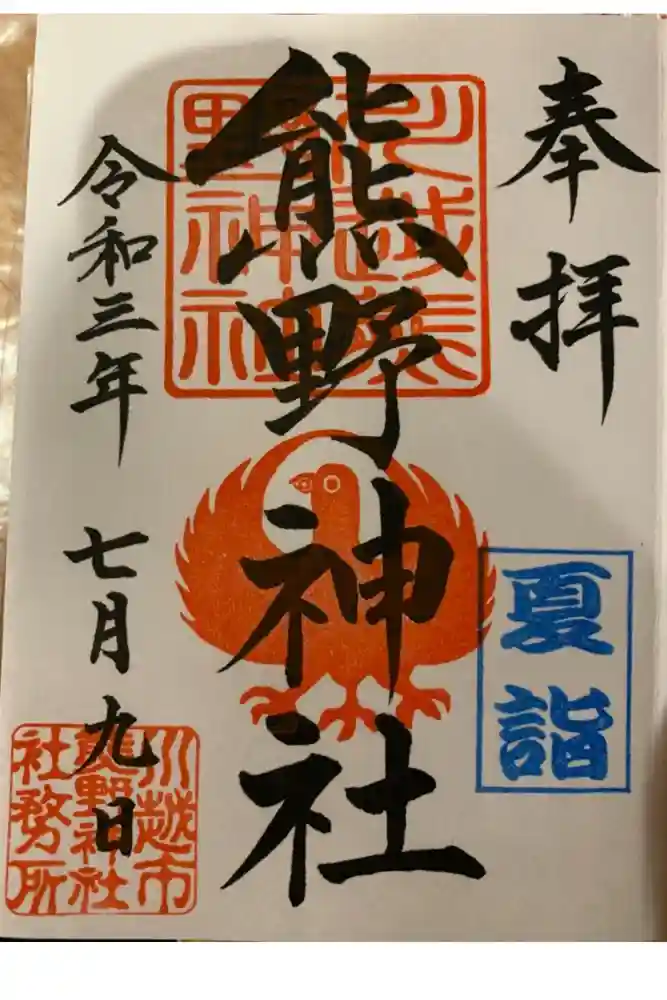 奉拝
夏詣
川越熊
野神社
熊野神社
令和三年 七月九日
川越市
熊野神社
社務所